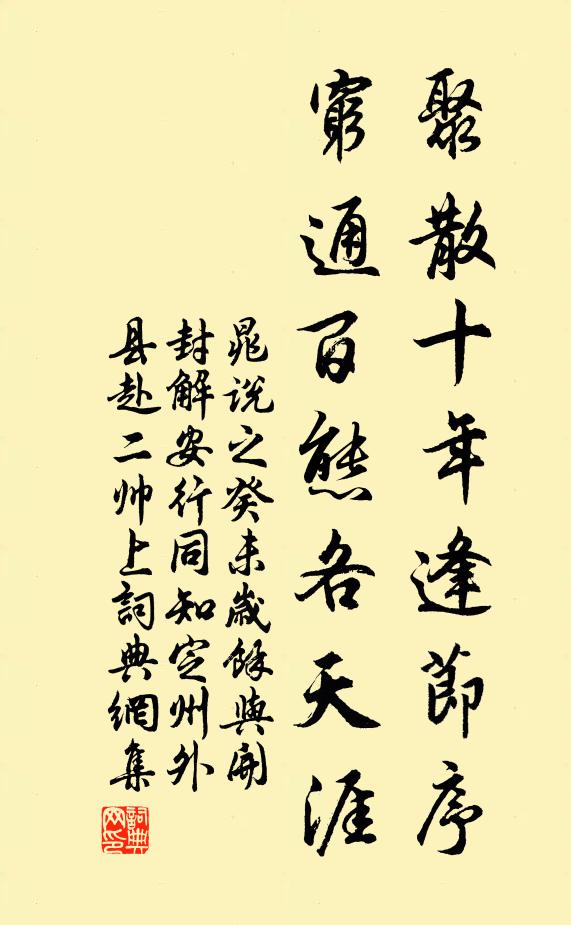 聚散十年逢節序
窮通百態各天涯
晁説之癸未歲餘與開
封解安行同知定州外
县赴二帅上詞典網集
詞典
网印